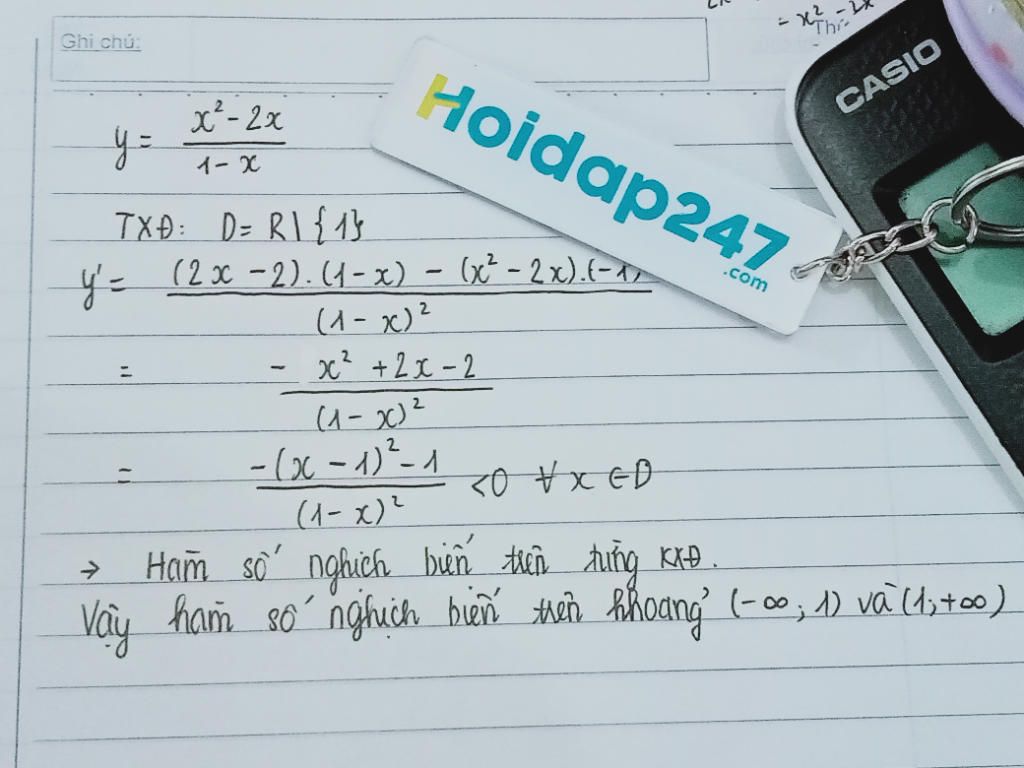 Ghi chú:
= x² - 2x
CASIO
Hoidap247
.com
y = (x² - 2x)/(1 - x)
TXĐ: D = R \ {1}
y' = ((2x - 2).(1 - x) - (x² - 2x).(-1)/(1 - x)²
= - (x² + 2x - 2)/(1 - x)²
= (-(x - 1)² - 1)/(1 - x)² <0 ∀ x ∈ D
→ Hàm số nghịch biến trên từng KXĐ.
Vậy hàm số nghịch biến trên khoảng (-∞; 1) và (1; +∞)